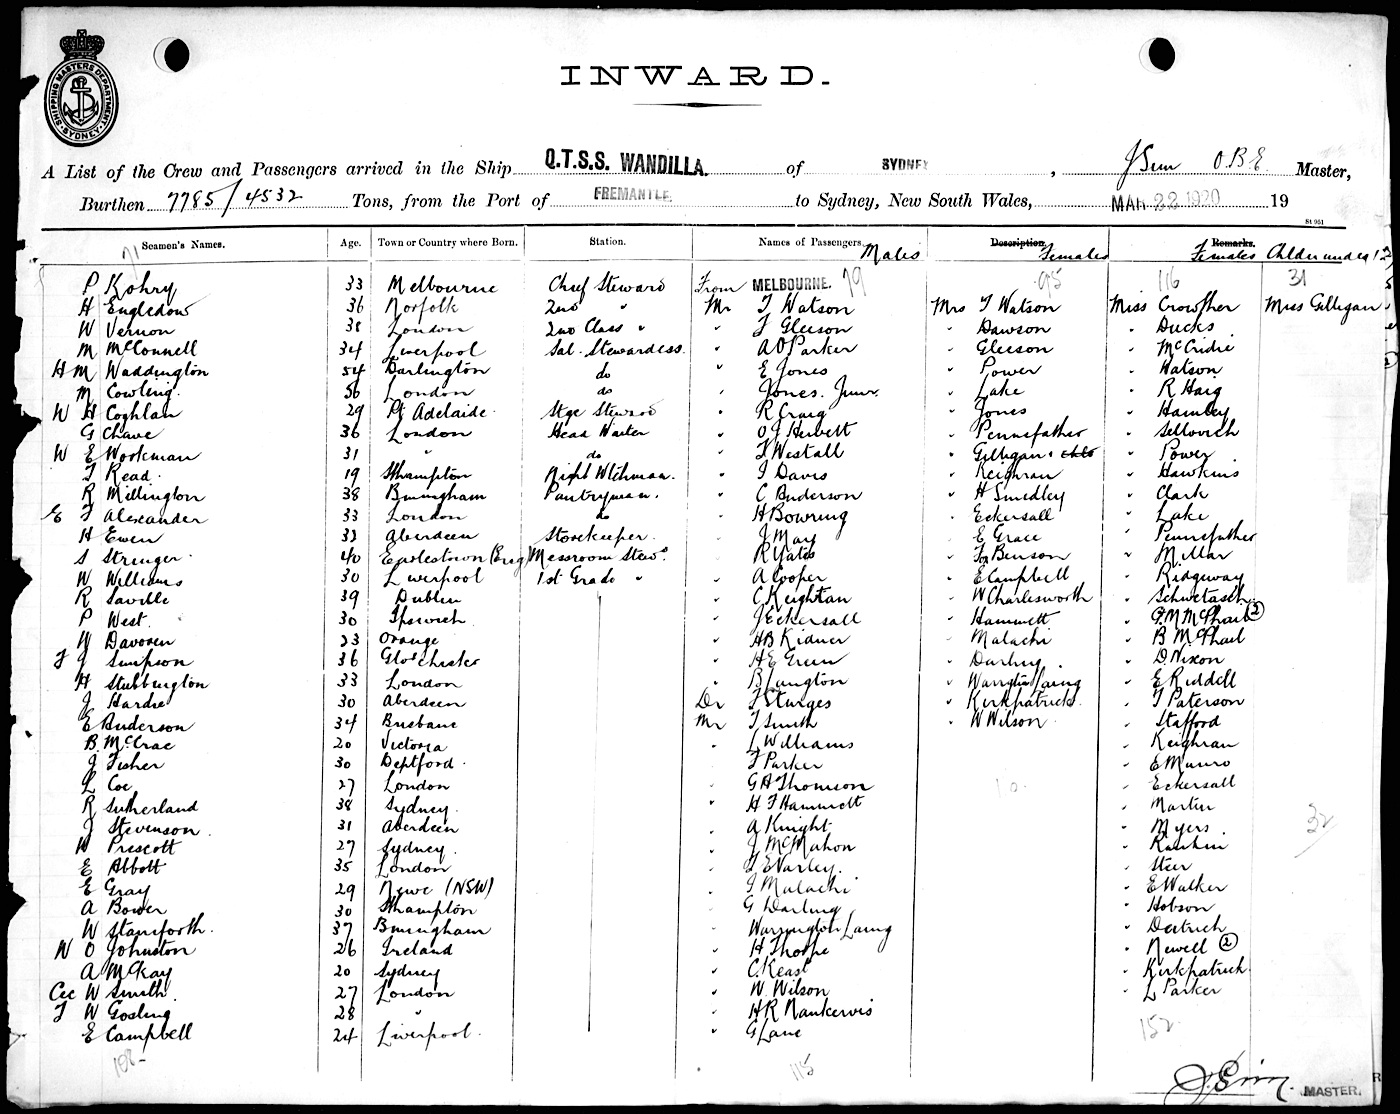 SHIPPING MASTERS DEPARTMENT
· SYDNEY ·
INWARD.
A List of the Crew and Passengers arrived in the Ship Q.T.S.S. WANDILLA. of SYDNEY , J Sim O.B.E. Master,
Burthen 7785/4532 Tons, from the Port of FREMANTLE. to Sydney, New South Wales, MAR 22 1920 19
St 951
Seamen's Names. Age. Town or Country where Born. Station. Names of Passengers. Males Description. Females Remarks. Females Childer under 12
71
P Kohry 33 Melbourne Chief Steward From MELBOURNE. 79 95 116 31
H Engledow 36 Norfolk 2nd " Mr T Watson Mrs T Watson Miss Crowther Miss Gilligan
W Vernon 38 London 2nd Class " " J Gleeson " Dawson " Ducks
M McConnell 34 Liverpool Sal. Stewardess " A O Parker " Gleeson " McCridie
H M Waddington 54 Darlington do " E Jones " Power " Watson
M Cowling 56 London do " Jones. Junr. " Lake " R Haig
W H Coghlan 29 Pt Adelaide Stge Steward " R Craig " Jones " Hamley
G Chave 36 London Head Waiter " O J Hewett " Pennefather " Sellovich
W E Workman 31 " do " F Westall " Gilligan & chld " Power
T Read 19 Sthampton Night Wtchman. " I Davis " Keighran " Hawkins
R Millington 38 Birmingham Pantryman. " C Anderson " H Smedley " Clark
E F Alexander 33 London do " H Bowring " Eckersall " Lake
H Ewen 32 Aberdeen Storekeeper " J May " E Grace " Pennefather
S Stringer 40 Earlestown (Eng) Messroom Stewd. " R Yates " F Benson " Millar
W Williams 30 Liverpool 1st Grade " " A Cooper " E Campbell " Ridgeway
R Saville 39 Dublin " C Keightan " W Charlesworth " Schwetasch
P West 30 Ipswich " J Eckersall " Hammett " P. M McPhail (2)
W Davoren 23 Orange " H B Kidner " Malachi " B McPhail
F J Simpson 36 Glochester " H E Green " Darling " D. Nixon
H Stubbington 33 London " B Langton " Warrington Laing " E Riddell
J Hardie 30 Aberdeen Dr F Sturges " Kirkpatrick " T Paterson
E Anderson 34 Brisbane Mr T Smith " W Wilson " Stafford
B. McCrae 20 Victoria " L Williams " Keighran
J Fisher 30 Deptford " F Parker " E Munro
L Coe 27 London " G H Thomson " Eckersall
R Sutherland 38 Sydney " H F Hammett " Martin
J Stevenson 31 Aberdeen " A Knight " Myers 32
W Prescott 27 Sydney " J McMahon " Rankin
E Abbott 35 London " T E Varley. " Steer
E Gray 29 Nowe (NSW) " I Malachi " E Walker
A Bower 30 Sthampton " G Darling " Hobson
W Staniforth 37 Birmingham " Warrington Laing " Deitrich
W O Johnston 26 Ireland " H Thorpe " Newell (2)
A McKay 20 Sydney " C. Keast " Kirkpatrick
Cec W Smith 27 London " W Wilson " L Parker
F W Gosling 28 " " H R Nankervis
E Campbell 24 Liverpool " G Lane 152
108 115
J Sim MASTER.